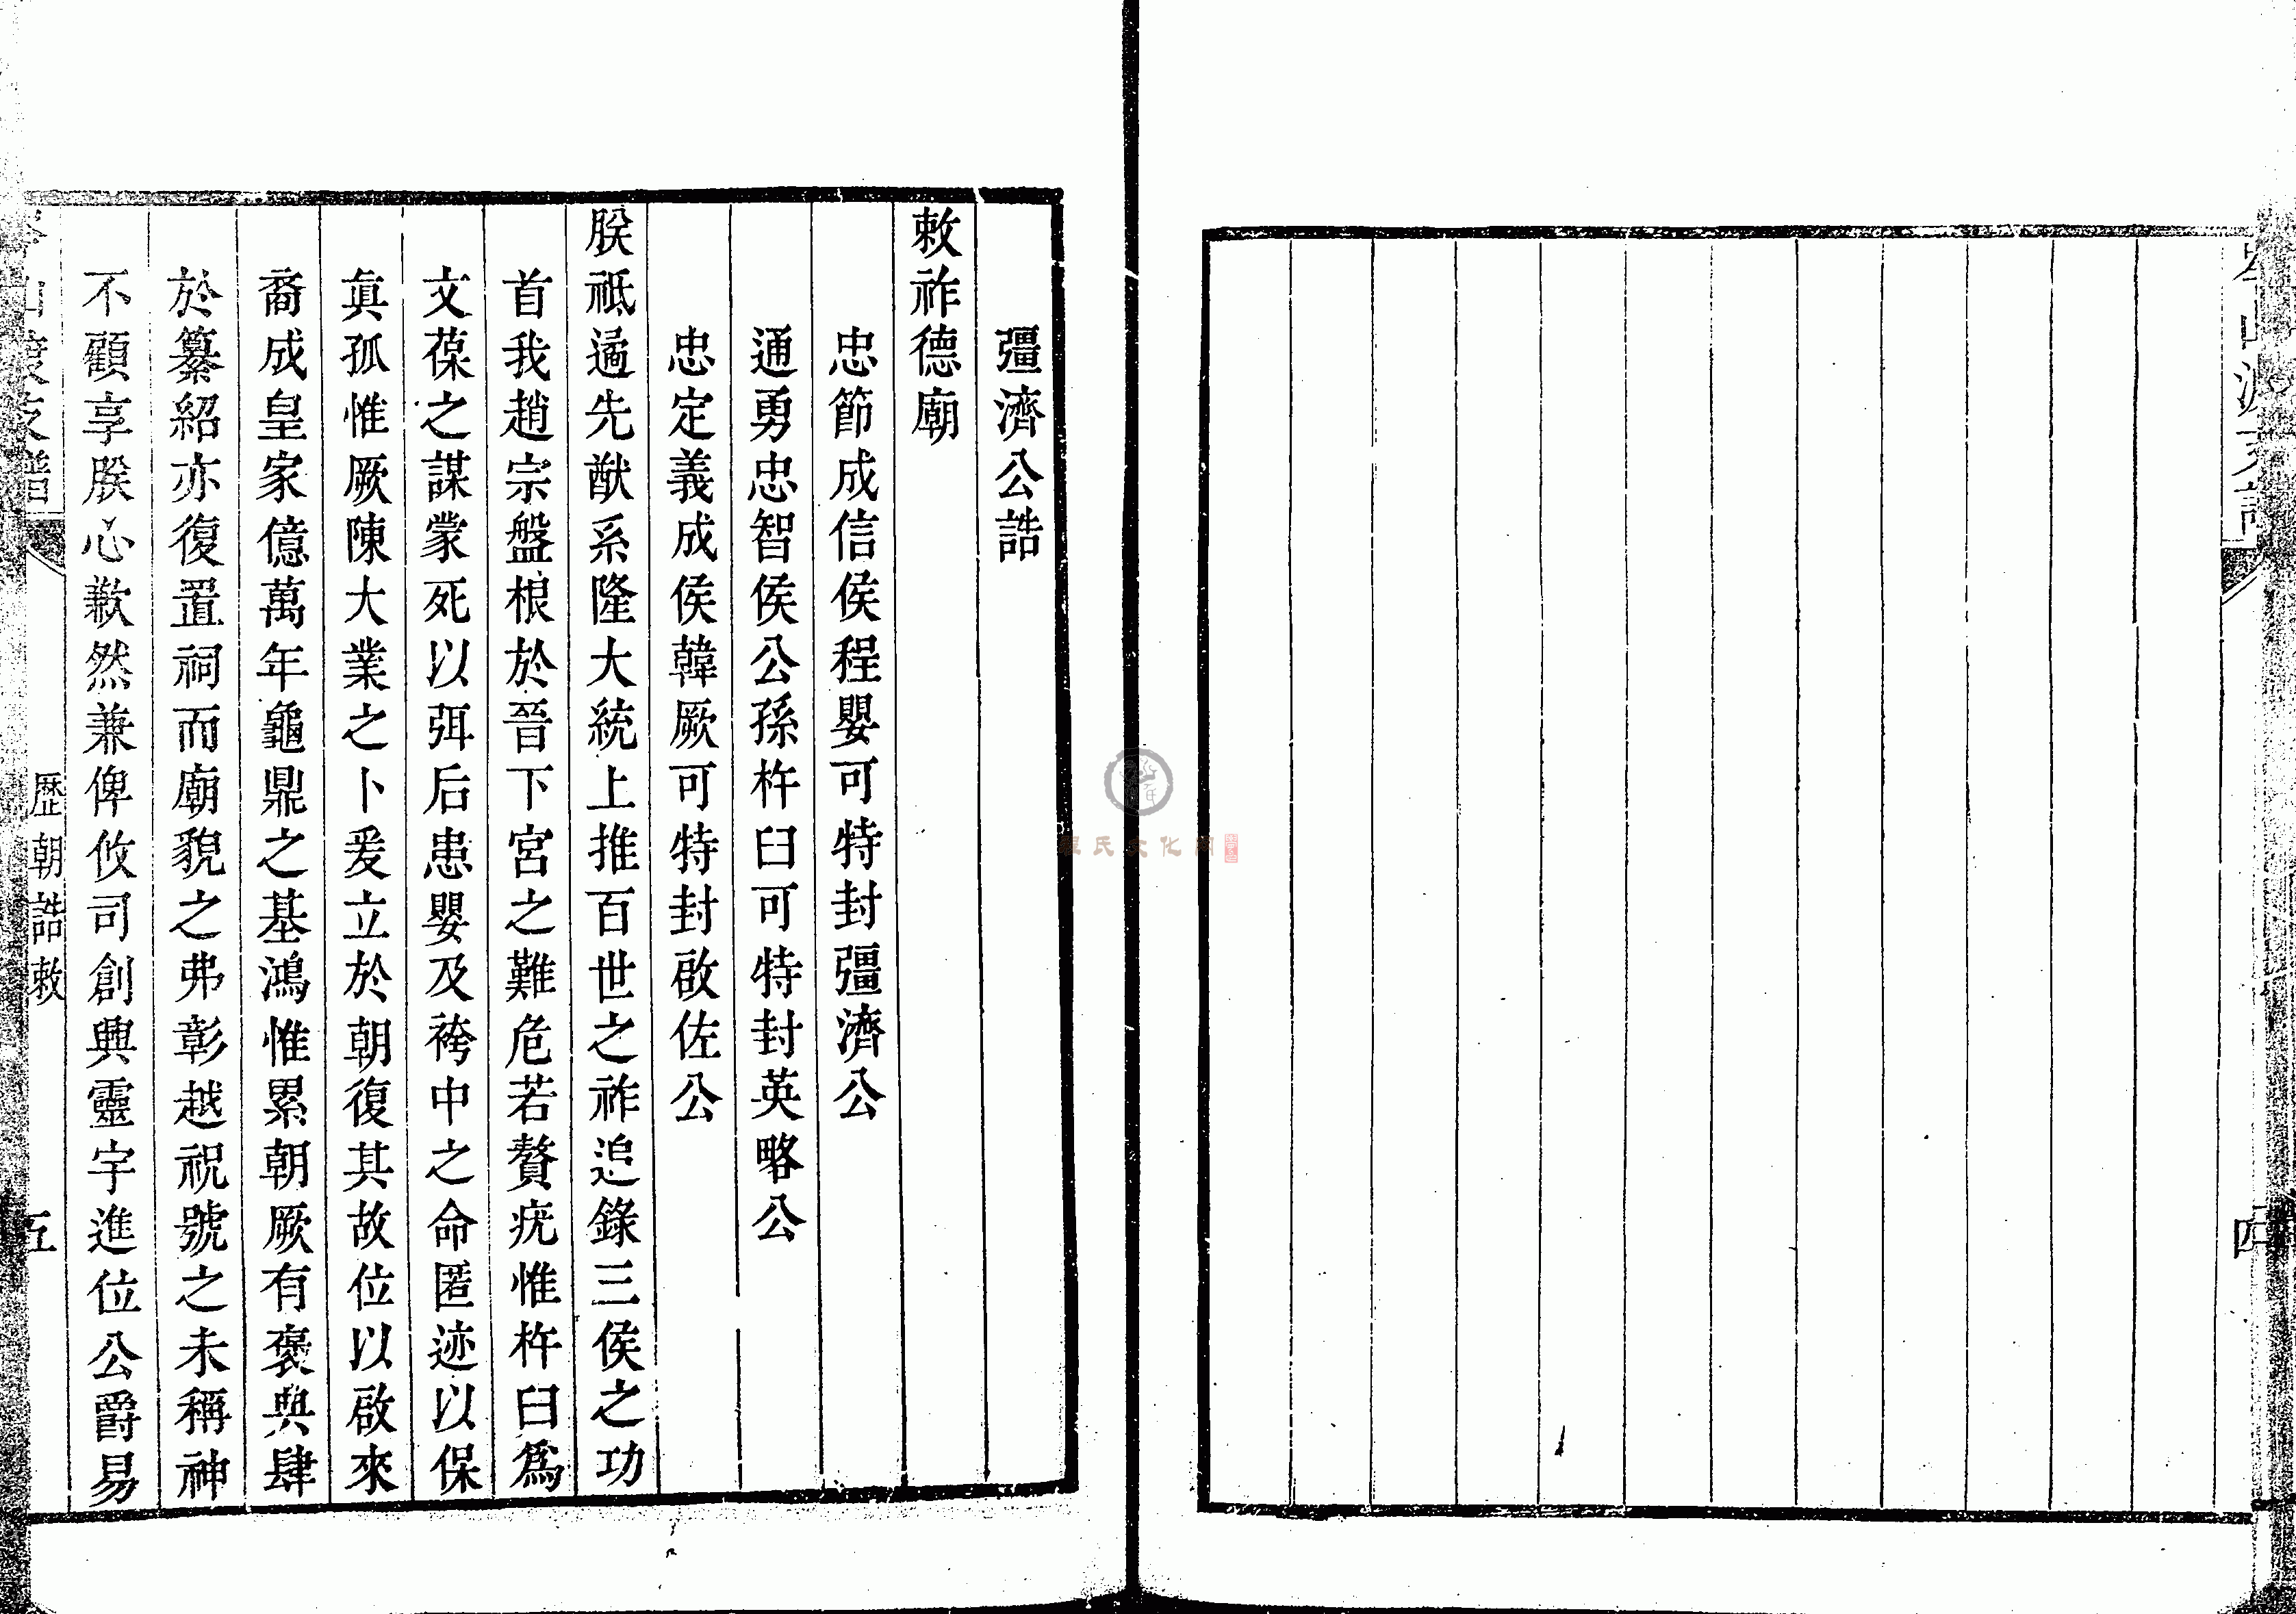 四
彊濟公誥
敕祚德廟
忠節成信侯程嬰可特封彊濟公
通勇忠智侯公孫杵臼可特封英略公
忠定義成侯韓厥可特封啟佐公
朕祗遹先猷系隆大統上推百世之祚追錄三侯之功
首我趙宗盤根於晉下宮之難危若贅疣惟杵臼爲
文葆之謀蒙死以弭后患嬰及袴中之命匿迹以保
眞孤惟厥陳大業之卜爰立於朝復其故位以啟來
裔成皇家億萬年龜鼎之基鴻惟累朝厥有褒典肆
於纂紹亦復置祠而廟貌之弗彰越祝號之未稱神
不顧享朕心歉然兼俾攸司創興靈宇進位公爵易
歷朝誥敕
五
氏文化